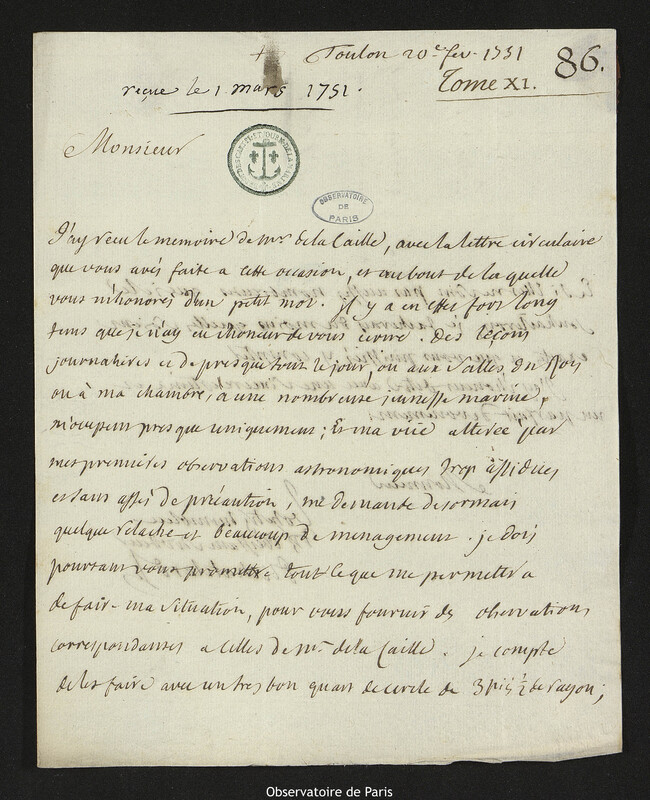 + Toulon 20e fev. 1751
86.
reçue le 1. mars 1751.
Tome XI.
Monsieur
OBSERVATOIRE
DE
PARIS
J'ay recu le memoire de mr. de la Caille, avec la lettre circulaire
que vous avés faite a cette occasion, et au bout de la quelle
vous m'honorés d'un petit mot. Il y a en effet fort long
tems que je n'ay eu l'honeur de vous ecrire. Des leçons
journalieres et de presque tout le jour, ou aux Salles du Roy
ou à ma chambre, a une nombreuse jeunesse marine,
m'ocupent presque uniquement; Et ma vüe alterée par
mes premieres observations astronomiques trop assidues
et sans assés de précaution, me demande desormais
quelque relache et beaucoup de menagement. je dois
pourtant vous promettre tout ce que me permettra
de faire ma situation, pour vous fournir des observations
correspondantes a celles de mr. de la Caille. je compte
de les faire avec un tres bon quart de cercle de 3 pieds 1/2 de rayon;
Observatoire de Paris